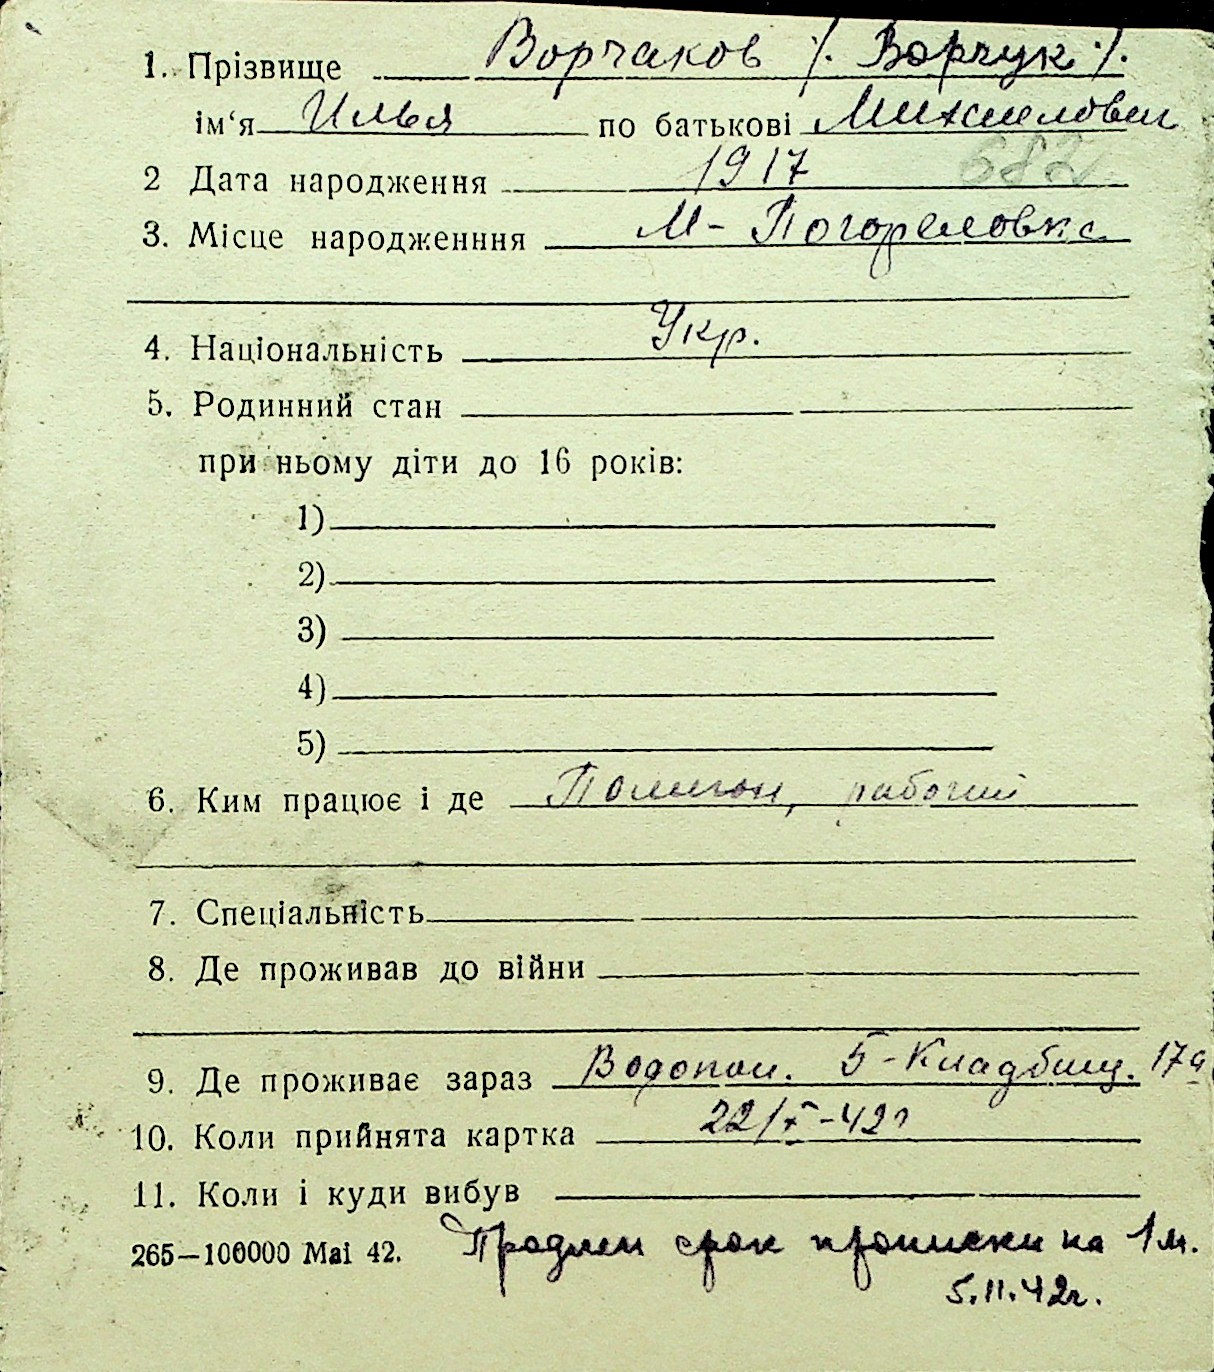 1. Прізвище Ворчаков /. Ворчук /.
ім‘я Илья по батькові Михаилович
2 Дата народження 1917 682
3. Місце народженння М-Погореловка
4. Національність Укр.
5. Родинний стан
при ньому діти до 16 років:
1)
2)
3)
4)
5)
6. Ким працює і де Полигон, рабочий
7. Спеціальність
8. Де проживав до війни
9. Де проживає зараз Водопой. 5-Кладбищ. 17а
10. Коли прийнята картка 22/X-42г
11. Коли і куди вибув
265—100000 Маі 42. Продлен срок прописки на 1 м.
5.11.42г.